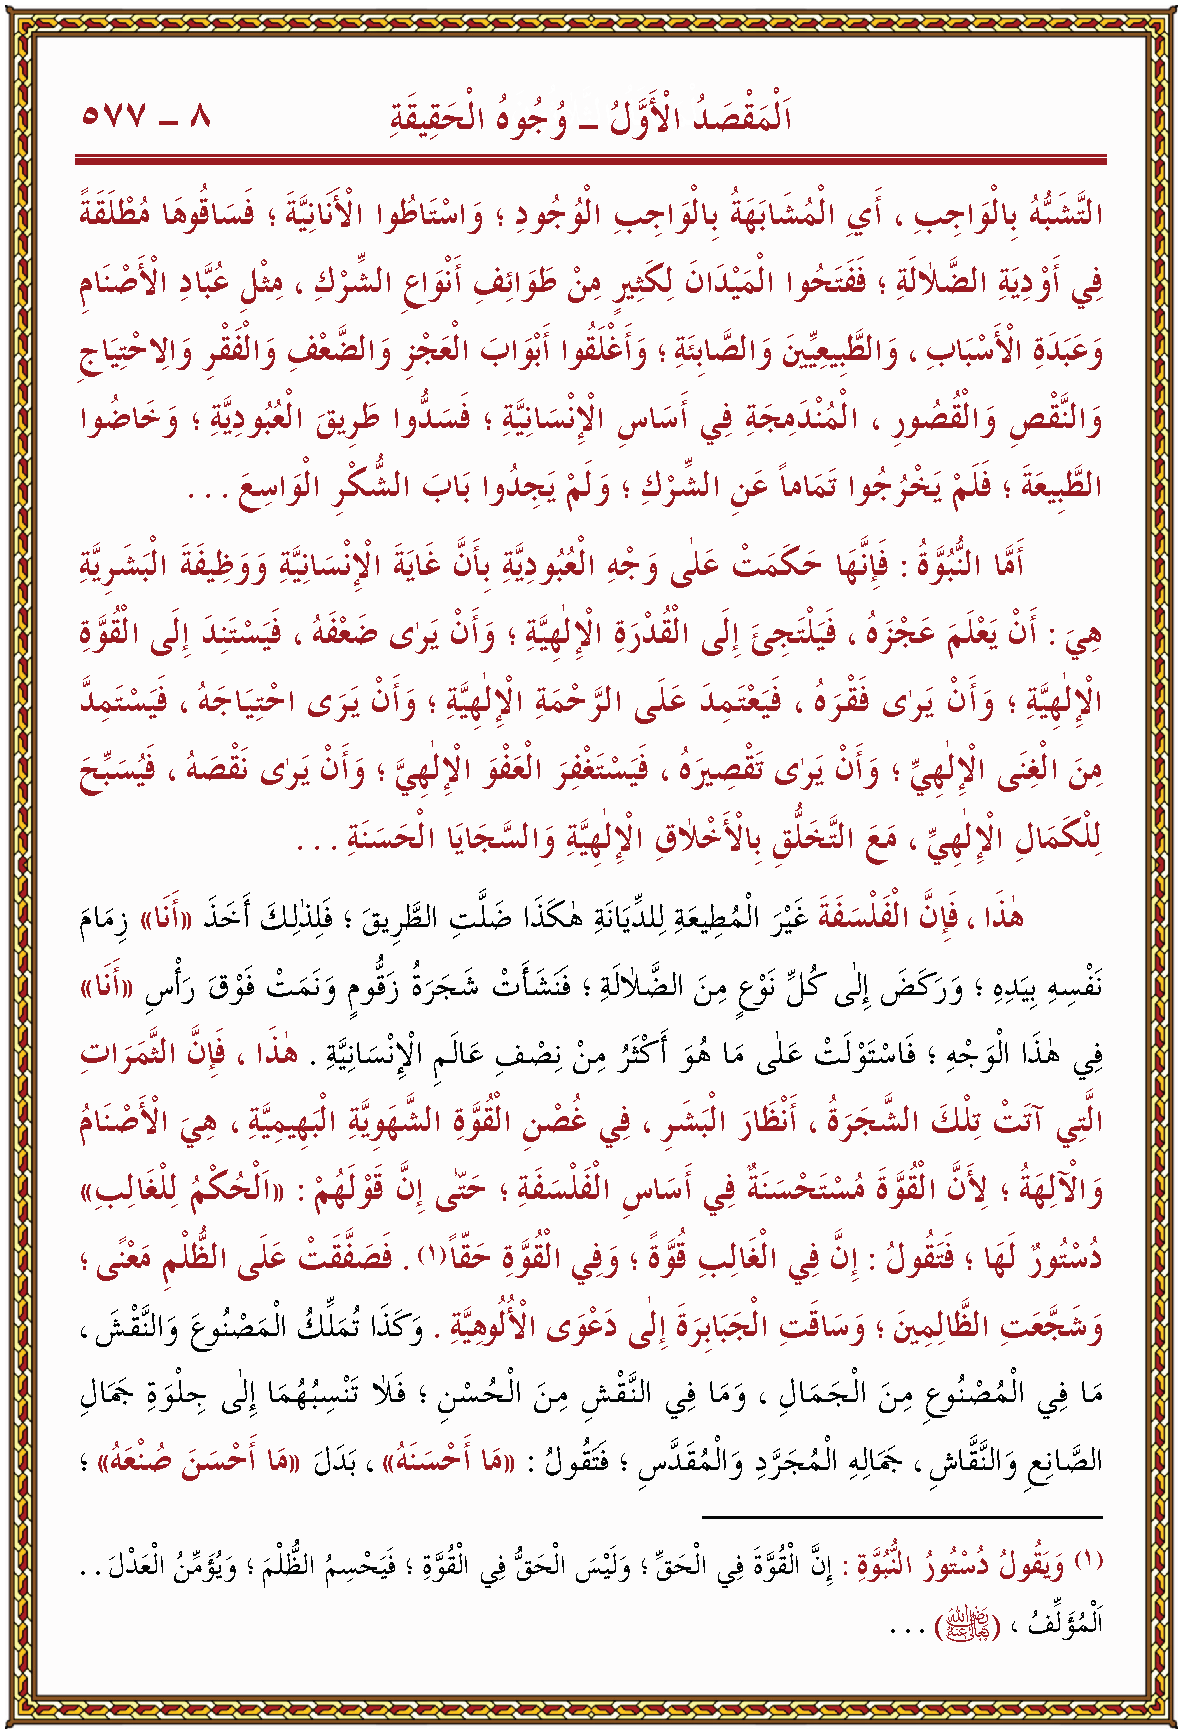 اَلْمَقْصَدُ الْأَوَّلُ ـ وُجُوهُ الْحَقِيقَةِ ٨ ـ ٥٧٧
التَّشَبُّهُ بِالْوَاجِبِ ، أَيِ الْمُشَابَهَةُ بِالْوَاجِبِ الْوُجُودِ ؛ وَاسْتَاطُوا الْأَنَانِيَّةَ ؛ فَسَاقُوهَا مُطْلَقَةً
فِي أَوْدِيَةِ الضَّلَالَةِ ؛ فَفَتَحُوا الْمَيْدَانَ لِكَثِيرٍ مِنْ طَوَائِفِ أَنْوَاعِ الشِّرْكِ ، مِثْلِ عُبَّادِ الْأَصْنَامِ
وَعَبَدَةِ الْأَسْبَابِ ، وَالطَّبِيعِيِّينَ وَالصَّابِئَةِ ؛ وَأَغْلَقُوا أَبْوَابَ الْعَجْزِ وَالضَّعْفِ وَالْفَقْرِ وَالِاحْتِيَاجِ
وَالنَّقْصِ وَالْقُصُورِ ، الْمُنْدَمِجَةِ فِي أَسَاسِ الْإِنْسَانِيَّةِ ؛ فَسَدُّوا طَرِيقَ الْعُبُودِيَّةِ ؛ وَخَاضُوا
الطَّبِيعَةَ ؛ فَلَمْ يَخْرُجُوا تَمَاماً عَنِ الشِّرْكِ ؛ وَلَمْ يَجِدُوا بَابَ الشُّكْرِ الْوَاسِعَ . . .
أَمَّا النُّبُوَّةُ : فَإِنَّهَا حَكَمَتْ عَلٰى وَجْهِ الْعُبُودِيَّةِ بِأَنَّ غَايَةَ الْإِنْسَانِيَّةِ وَوَظِيفَةَ الْبَشَرِيَّةِ
هِيَ : أَنْ يَعْلَمَ عَجْزَهُ ، فَيَلْتَجِئَ إِلَى الْقُدْرَةِ الْإِلٰهِيَّةِ ؛ وَأَنْ يَرٰى ضَعْفَهُ ، فَيَسْتَنِدَ إِلَى الْقُوَّةِ
الْإِلٰهِيَّةِ ؛ وَأَنْ يَرٰى فَقْرَهُ ، فَيَعْتَمِدَ عَلَى الرَّحْمَةِ الْإِلٰهِيَّةِ ؛ وَأَنْ يَرَى احْتِيَاجَهُ ، فَيَسْتَمِدَّ
مِنَ الْغِنَى الْإِلٰهِيِّ ؛ وَأَنْ يَرٰى تَقْصِيرَهُ ، فَيَسْتَغْفِرَ الْعَفْوَ الْإِلٰهِيَّ ؛ وَأَنْ يَرٰى نَقْصَهُ ، فَيُسَبِّحَ
لِلْكَمَالِ الْإِلٰهِيِّ ، مَعَ التَّخَلُّقِ بِالْأَخْلَاقِ الْإِلٰهِيَّةِ وَالسَّجَايَا الْحَسَنَةِ . . .
هٰذَا ، فَإِنَّ الْفَلْسَفَةَ غَيْرَ الْمُطِيعَةِ لِلدِّيَانَةِ هٰكَذَا ضَلَّتِ الطَّرِيقَ ؛ فَلِذٰلِكَ أَخَذَ «أَنَا» زِمَامَ
نَفْسِهِ بِيَدِهِ ؛ وَرَكَضَ إِلٰى كُلِّ نَوْعٍ مِنَ الضَّلَالَةِ ؛ فَنَشَأَتْ شَجَرَةُ زَقُّومٍ وَنَمَتْ فَوْقَ رَأْسِ «أَنَا»
فِي هٰذَا الْوَجْهِ ؛ فَاسْتَوْلَتْ عَلٰى مَا هُوَ أَكْثَرُ مِنْ نِصْفِ عَالَمِ الْإِنْسَانِيَّةِ . هٰذَا ، فَإِنَّ الثَّمَرَاتِ
الَّتِي آتَتْ تِلْكَ الشَّجَرَةُ ، أَنْظَارَ الْبَشَرِ ، فِي غُصْنِ الْقُوَّةِ الشَّهَوِيَّةِ الْبَهِيمِيَّةِ ، هِيَ الْأَصْنَامُ
وَالْآلِهَةُ ؛ لِأَنَّ الْقُوَّةَ مُسْتَحْسَنَةٌ فِي أَسَاسِ الْفَلْسَفَةِ ؛ حَتّٰى إِنَّ قَوْلَهُمْ : «اَلْحُكْمُ لِلْغَالِبِ»
دُسْتُورٌ لَهَا ؛ فَتَقُولُ : إِنَّ فِي الْغَالِبِ قُوَّةً ؛ وَفِي الْقُوَّةِ حَقّاً(١) . فَصَفَّقَتْ عَلَى الظُّلْمِ مَعْنًى ؛
وَشَجَّعَتِ الظَّالِمِينَ ؛ وَسَاقَتِ الْجَبَابِرَةَ إِلٰى دَعْوَى الْأُلُوهِيَّةِ . وَكَذَا تُمَلِّكُ الْمَصْنُوعَ وَالنَّقْشَ ،
مَا فِي الْمُصْنُوعِ مِنَ الْجَمَالِ ، وَمَا فِي النَّقْشِ مِنَ الْحُسْنِ ؛ فَلَا تَنْسِبُهُمَا إِلٰى جِلْوَةِ جَمَالِ
الصَّانِعِ وَالنَّقَّاشِ ، جَمَالِهِ الْمُجَرَّدِ وَالْمُقَدَّسِ ؛ فَتَقُولُ : «مَا أَحْسَنَهُ» ، بَدَلَ «مَا أَحْسَنَ صُنْعَهُ» ؛
(١) وَيَقُولُ دُسْتُورُ النُّبُوَّةِ : إِنَّ الْقُوَّةَ فِي الْحَقِّ ؛ وَلَيْسَ الْحَقُّ فِي الْقُوَّةِ ؛ فَيَحْسِمُ الظُّلْمَ ؛ وَيُؤَمِّنُ الْعَدْلَ . .
اَلْمُؤَلِّفُ ، (رَضِيَ اللهُ تَعَالٰى عَنْهُ) . . .